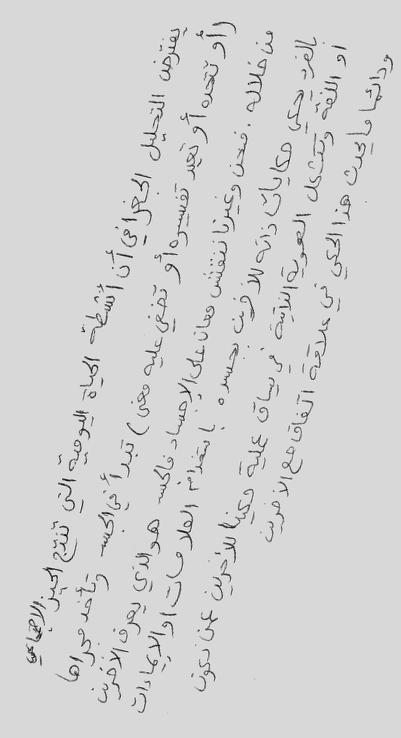 يفترض التحليل الجغرافي أن أنشطة الحياة اليومية التي تنتج الحيز الاجتماعي
(أو تتحده أو تعيد تفسيره أو تضفي عليه معنى) تبدأ في الجسد وتأخذ مجراها
من خلاله. فنحن وغيرنا ننقش معان على الاجساد فالجسد هو الذي يعرف الآخرين
بالفرد حكي حكايات ذاته للآخرين بجسده، باستخدام العلامات او الإيماءات
او اللغة وتتشكل الهوية الذاتية في سياق عملية حكينا للآخرين عمن نكون
ودائما ما يحدث هذا الحكي في علاقة اتفاق مع الآخرين